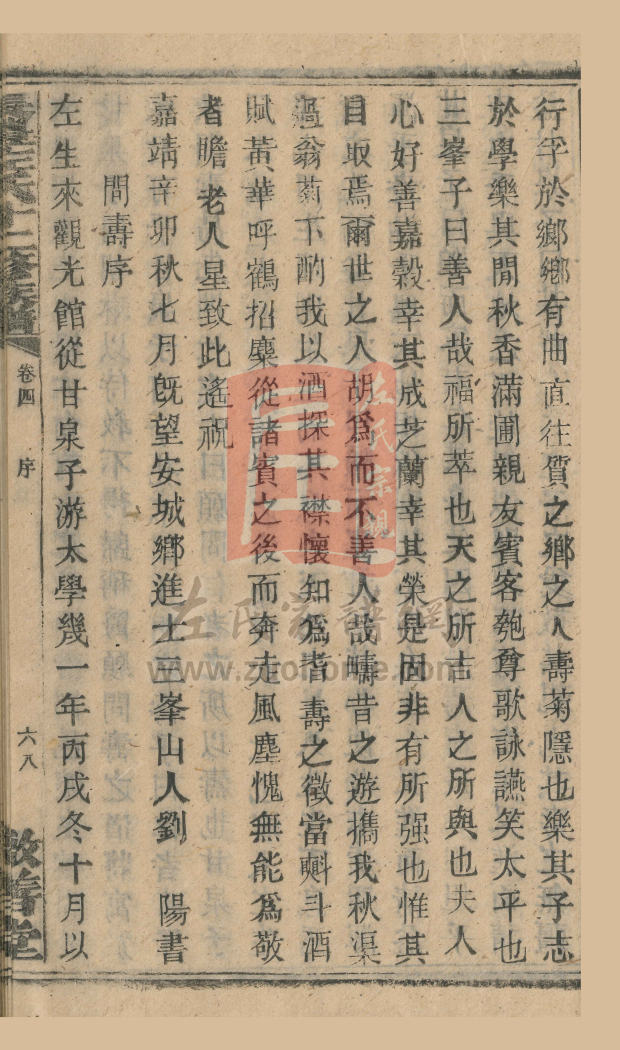 行孚於鄉鄉有曲直往質之鄉之人壽菊隱也樂其子志
於學樂其閒秋香滿圃親友賓客匏尊歌詠讌笑太平也
三峯子曰善人哉福所萃也天之所吉人之所與也夫人
心好善嘉穀幸其成芝蘭幸其榮是固非有所强也惟其
自取焉爾世之人胡爲而不善人哉疇昔之遊攜我秋渠
過翁菊下酌我以酒探其襟懷知爲耆 壽之徵當㪺斗酒
賦黃華呼鶴招麋從諸賓之後而奔走風塵愧無能爲敬
者瞻 老人星致此遙祝
嘉靖辛卯秋七月旣望安城鄉進士三峯山人劉 陽書
間壽序
左生來觀光館從甘泉子游太學幾一年丙戌冬十月以
卷四 序 六八
敬善堂
左氏宗親
左氏家譜網
www.zuohome.com